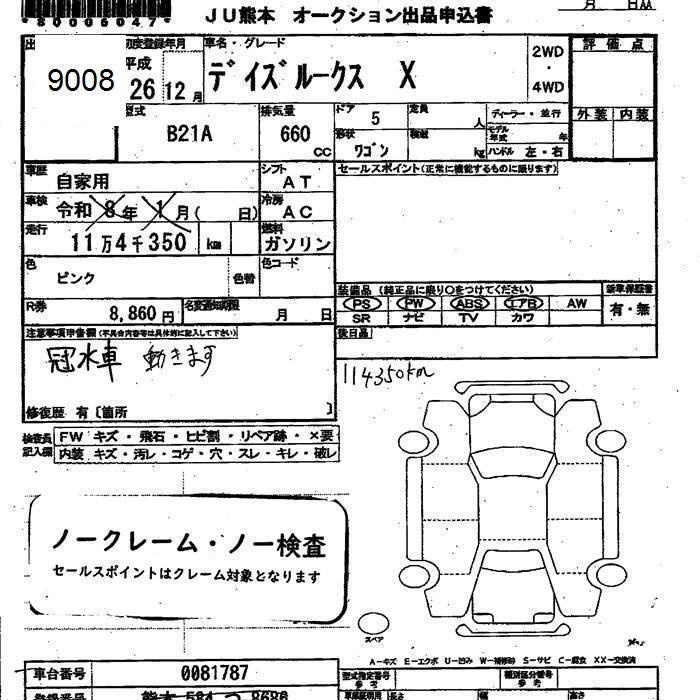 *S0006047*
月 日AA
JU熊本 オークション出品申込書
出 9008
初度登録年月 平成 26 12 月
車名・グレード デイズルークス X
2WD ・ 4WD
評価点
外装 内装
型式 B21A
排気量 660 cc
ドア 5
形状 ワゴン
定員 人
積載 kg
ディーラー・並行
モデル年式 年
ハンドル 左・右
車歴 自家用
シフト AT
セールスポイント(正常に機能するものに限ります)
車検 令和 8年 1月( 日)
冷房 AC
走行 11万4千350 km
燃料 ガソリン
色 ピンク 色替
色コード
装備品 (純正品に限り○をつけてください)
新車保証書 有・無
PS PW ABS エアB AW
SR ナビ TV カワ
R券 8,860円
名変通知期限 月 日
後日品
注意事項申告欄(不具合内容等は具体的に記入して下さい)
冠水車 動きます
114350km
修復歴 有〔箇所 〕
検査員記入欄
FW キズ・飛石・ヒビ割・リペア跡・×要
内装 キズ・汚レ・コゲ・穴・スレ・キレ・破レ
ノークレーム・ノー検査
セールスポイントはクレーム対象となります
スペア
A−キズ E−エクボ U−凹み W−補修跡 S−サビ C−腐食 XX−交換済
車台番号 0081787
型式指定番号 参考
類別区分番号 参考
登録番号 熊本 584 つ 8686
車庫証明用 長さ 幅 高さ